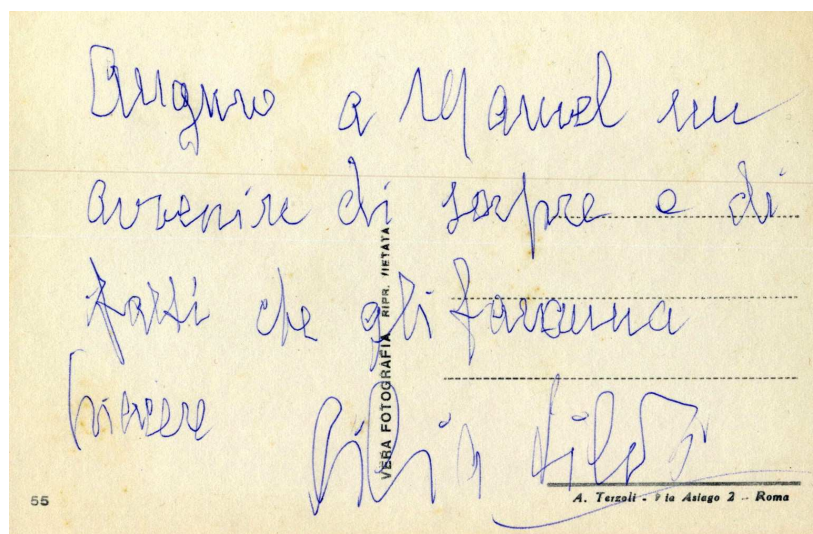 Auguro a Manuel un
avvenire di sorpre e di
fatti che gli faranna
piacere
Silvi
VERA FOTOGRAFIA RIPR. VIETATA
55
A. Terzoli - Via Asiago 2 - Roma